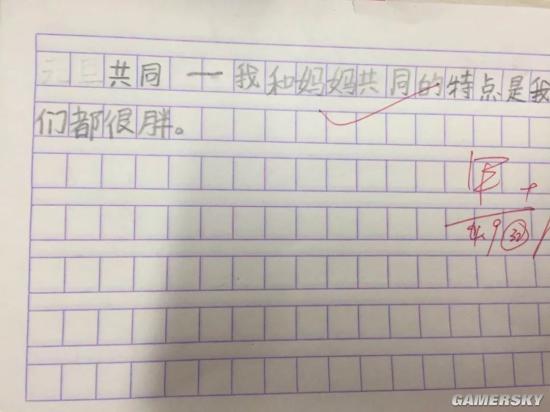 共同 — 我和妈妈共同的特点是我
们都很胖。
GAMERSKY